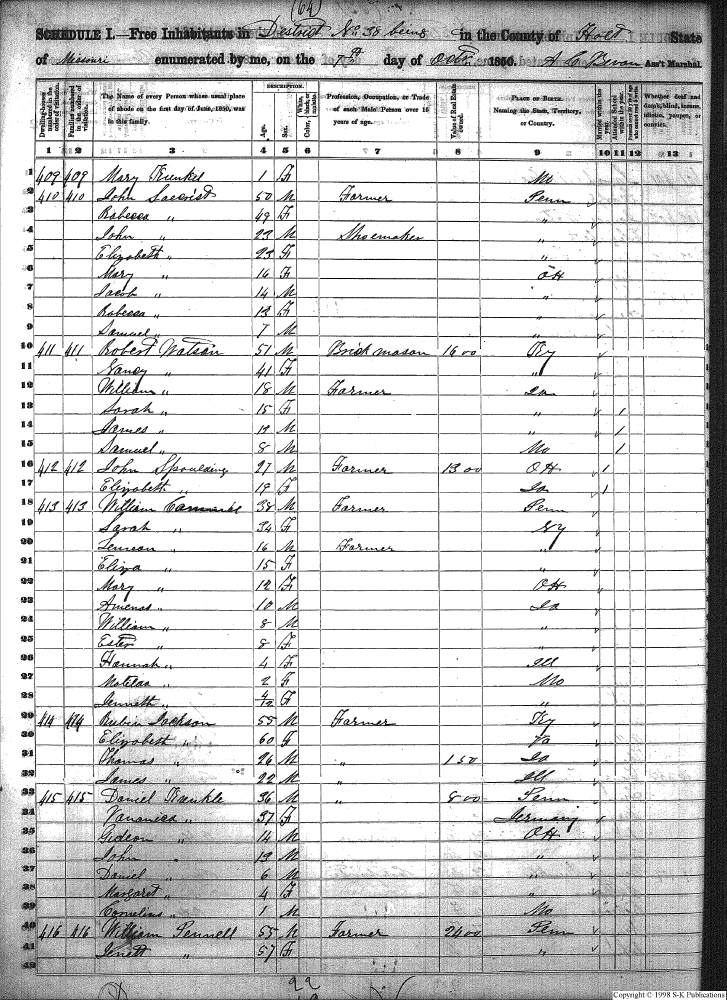 (64)
SCHEDULE I.—Free Inhabitants in District No 38 being in the County of Holt State
of Missouri enumerated by me, on the 7th day of Octr 1850. A C Bevan Ass't Marshal.
Dwelling-houses numbered in the order of visitation.
Families numbered in the order of visitation.
The Name of every Person whose usual place of abode on the first day of June, 1850, was in this family.
DESCRIPTION.
Age.
Sex.
White, black, or mulatto.
Color,
Profession, Occupation, or Trade of each Male Person over 15 years of age.
Value of Real Estate owned.
PLACE OF BIRTH. Naming the State, Territory, or Country.
Married within the year.
Attended School within the year.
Whether deaf and dumb, blind, insane, idiotic, pauper, or convict.
1 2 3 4 5 6 7 8 9 10 11 12 13
1 409 409 Mary Kunkel 1 F Mo
2 410 410 John 50 M Farmer Penn
3 Rabecca " 49 F "
4 John " 23 M Shoemaker "
5 Elizabeth " 23 F "
6 Mary " 16 F OH
7 Jacob " 14 M "
8 Rabecca " 12 F "
9 Samuel " 7 M "
10 411 411 Robert Watson 51 M Brick mason 1600 Ky
11 Nancy " 41 F "
12 William " 18 M Farmer Ia
13 Sarah " 15 F " 1
14 James " 12 M " 1
15 Samuel " 8 M Mo 1
16 412 412 John Spoulding 27 M Farmer 1300 OH 1
17 Elizabeth " 19 F Ia 1
18 413 413 William 38 M Farmer Penn
19 Sarah " 34 F NY
20 " 16 M Farmer "
21 Eliza " 15 F "
22 Mary " 12 F OH
23 Amenas " 10 M Ia
24 William " 8 M "
25 Ester " 8 F "
26 Hannah " 4 F Ill
27 Matilda " 2 F Mo
28 Jenneth " 4/12 F "
29 414 414 Reubin Jackson 55 M Farmer Ky
30 Elizabeth " 60 F Va
31 Thomas " 26 M " 150 Ia
32 James " 22 M " Ill
33 415 415 Daniel Kunkle 36 M " 800 Penn
34 " 37 F Germany
35 Gideon " 14 M OH
36 John " 12 M "
37 Daniel " 6 M "
38 Margaret " 4 F "
39 Cornelius " 1 M Mo
40 416 416 William Pennell 55 M Farmer 2400 Penn
41 " 57 F "
42
Copyright © 1998 S-K Publications